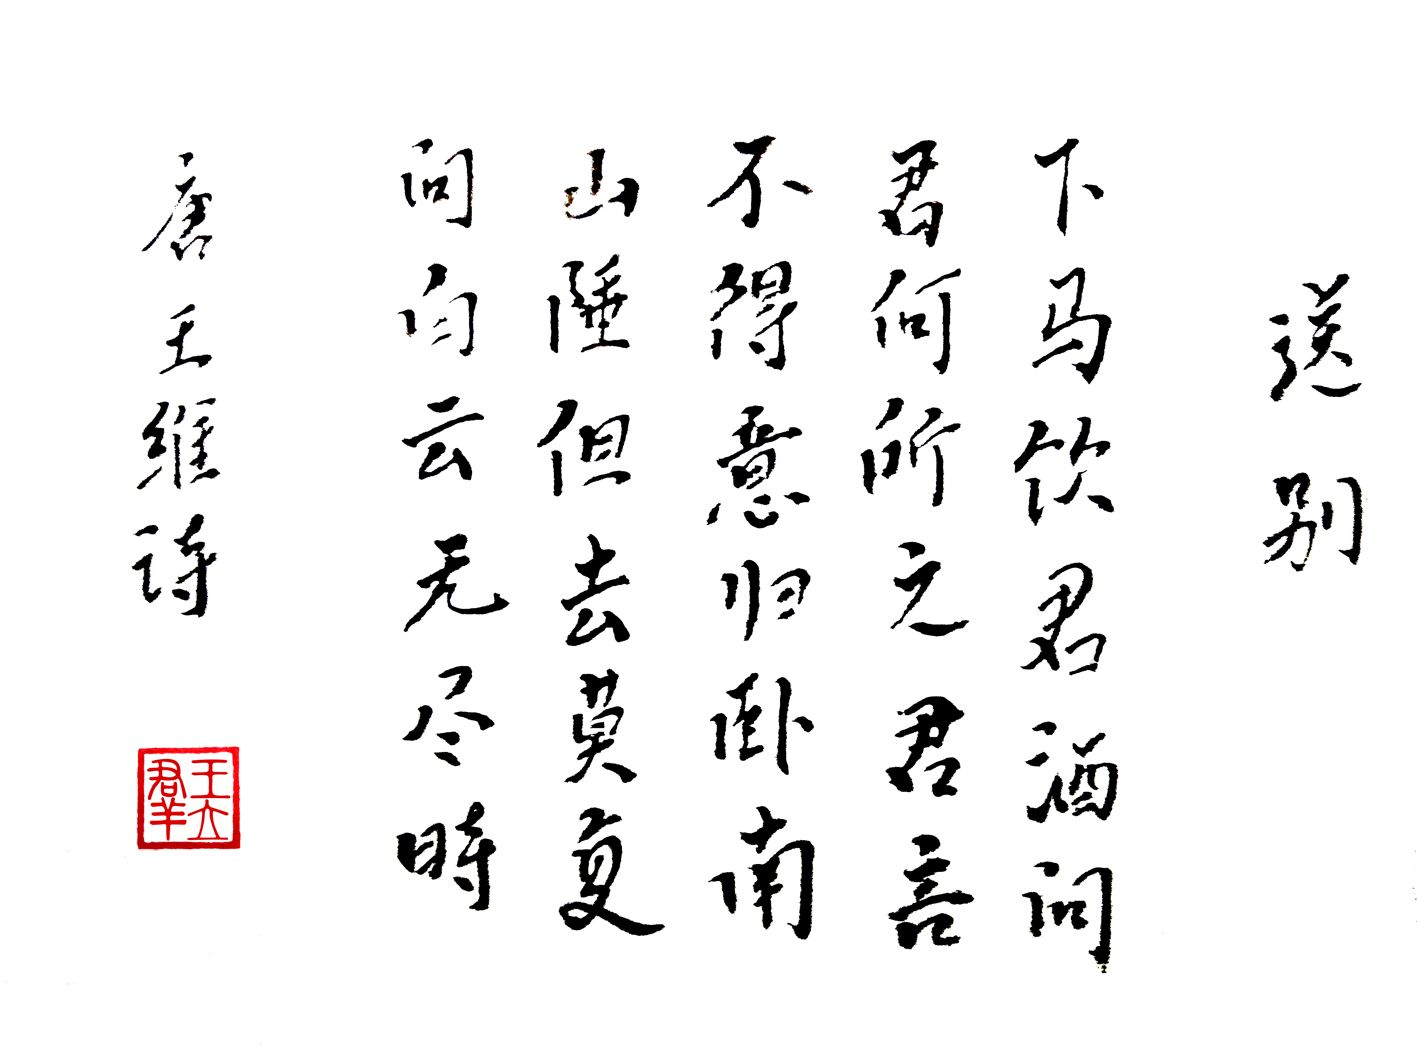 送别
下马饮君酒问
君何所之君言
不得意归卧南
山陲但去莫复
问白云无尽时
唐王维诗
王立羣